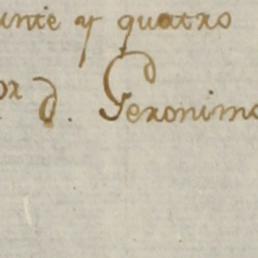 inte y quatro
or d. Geronimo